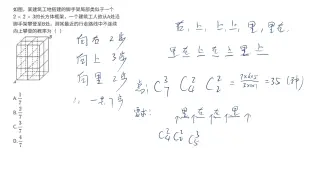 如图，某建筑工地搭建的脚手架局部类似于一个
2 × 2 × 3的长方体框架，一个建筑工人欲从A处沿
脚手架攀登至B处，则其最近的行走路线中不连续
向上攀登的概率为（ ）
A. 3/7
B. 2/7
C. 3/7
D. 4/7
向右 2步
向上 3步
向里 2步
∴ 一共7步
右, 上, 上, 里, 里右
里 右 上 上 里 右 上
总: C₇³ C₄² C₂²
里 右 右 里
C₄² C₂² C₅³